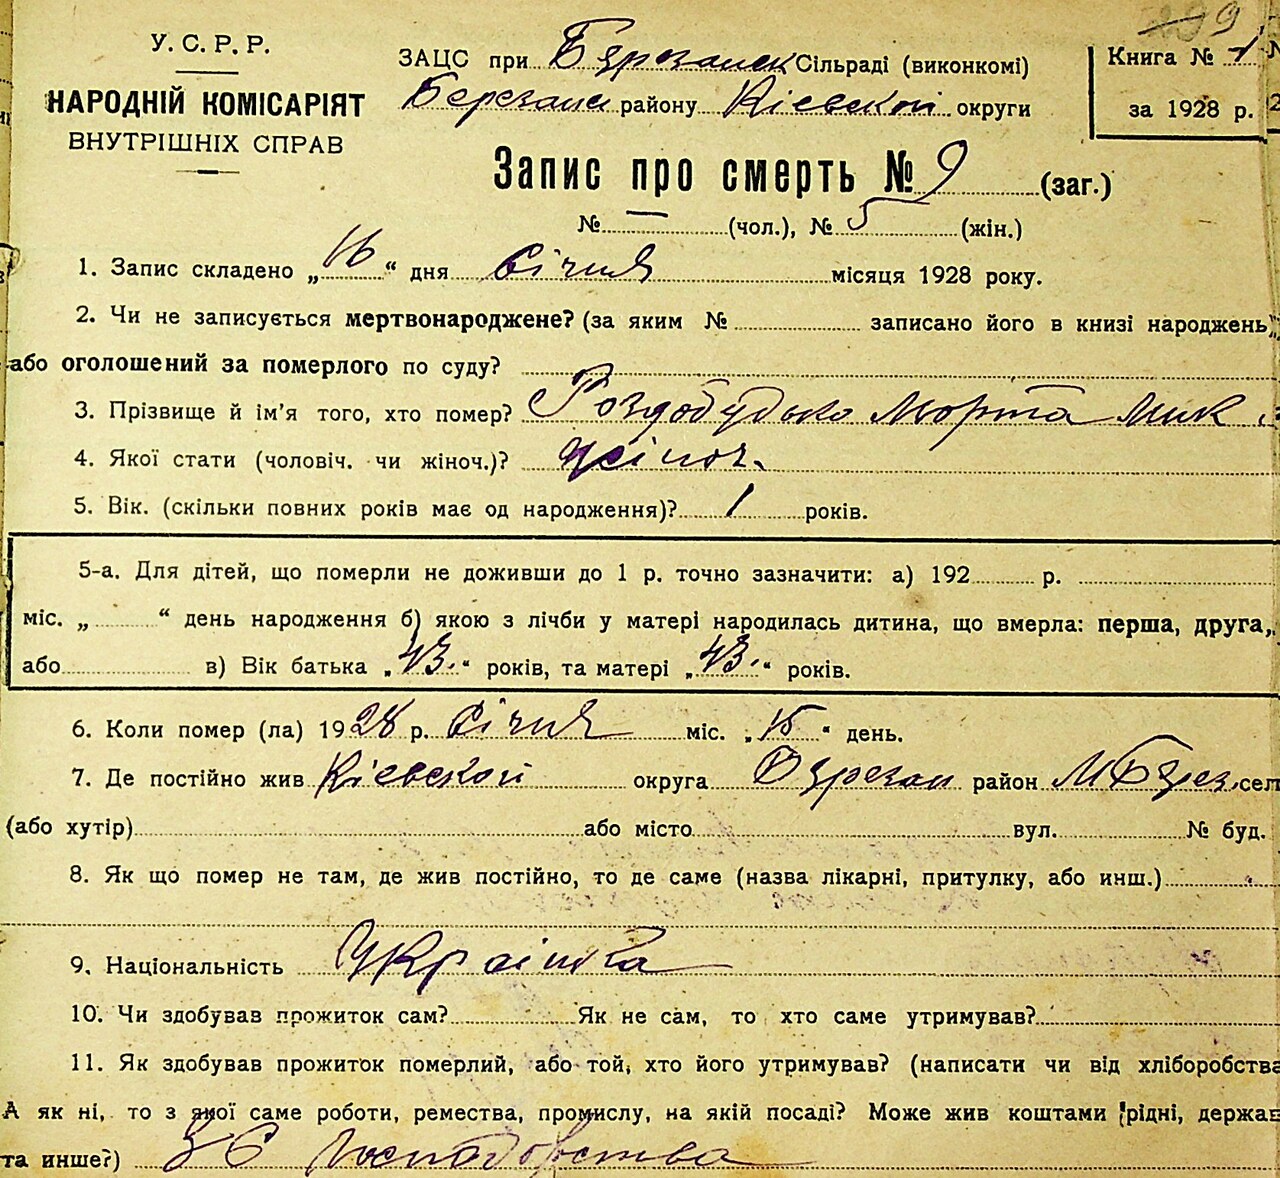 У. С. Р. Р.
НАРОДНІЙ КОМІСАРІЯТ
ВНУТРІШНІХ СПРАВ
ЗАЦС при Бэрезанск Сільраді (виконкомі)
Березанс району Кіевской округи
Книга № 1
за 1928 р.
Запис про смерть № 9 (заг.)
№ — (чол.), № 5 (жін.)
1. Запис складено „16“ дня Січня місяця 1928 року.
2. Чи не записується мертвонароджене? (за яким № записано його в книзі народжень,
або оголошений за померлого по суду?
3. Прізвище й ім'я того, хто помер? Роздобудько Морта Мик
4. Якої стати (чоловіч. чи жіноч.)? Жіноч.
5. Вік. (скільки повних років має од народження)? 1 років.
5-а. Для дітей, що померли не доживши до 1 р. точно зазначити: а) 192 р.
міс. „ “ день народження б) якою з лічби у матері народилась дитина, що вмерла: перша, друга,
або в) Вік батька „43.“ років, та матері „43.“ років.
6. Коли помер (ла) 1928 р. Січня міс. „15“ день.
7. Де постійно жив Кіевской округа Бэрезан район М Бэрез. сел
(або хутір) або місто вул. № буд.
8. Як що помер не там, де жив постійно, то де саме (назва лікарні, притулку, або инш.)
9. Національність Украінка
10. Чи здобував прожиток сам? Як не сам, то хто саме утримував?
11. Як здобував прожиток померлий, або той, хто його утримував? (написати чи від хліборобства
А як ні, то з якої саме роботи, ремества, промислу, на якій посаді? Може жив коштами рідні, держав
та инше?) Зс Господорства